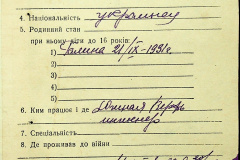 4. Національність украинец
5. Родинний стан
при ньому діти до 16 років:
1) Галина 21/IX-1931г.
2)
3)
4)
5)
6. Ким працює і де
инженер
7. Спеціальність
8. Де проживав до війни